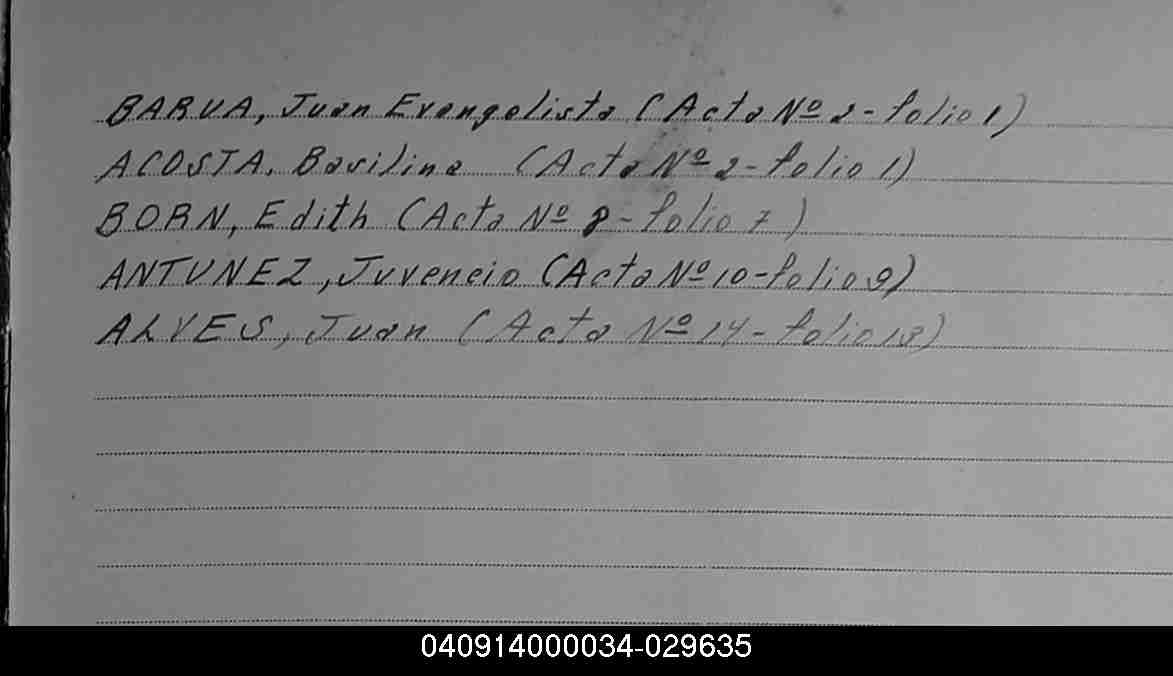 BARUA, Juan Evangelista (Acta Nº 2 - folio 1)
ACOSTA, Basilina (Acta Nº 2 - folio 1)
BORN, Edith (Acta Nº 8 - folio 7)
ANTUNEZ, Juvencio (Acta Nº 10 - folio 9)
ALVES, Juan (Acta Nº 14 - folio 13)
040914000034-029635